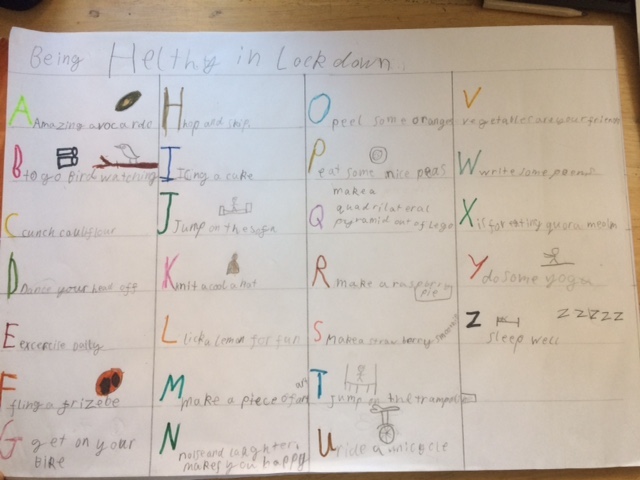 Being Helthy in Lockdown.
A Amazing avocardo
B to go Bird watching
C crunch cauliflour
D Dance your head off
E excercise daily
F fling a frizebe
G get on your
BIKE
H hop and skip
I Icing a cake
J Jump on the sofa
K knit a cool a hat
L lick a lemon for fun
M make a piece of art
N noise and laughter
makes you happy
O peel some oranges
P eat some nice peas
Q make a
quadrilateral
pyramid out of lego
R make a raspberry
pie
S Make a straw berry smoothie
T jump on the trampoline
U ride a unicycle
V vegetables are your friends
W write some poems
X is for eating
Y do some yoga
Z zzzzz
sleep well